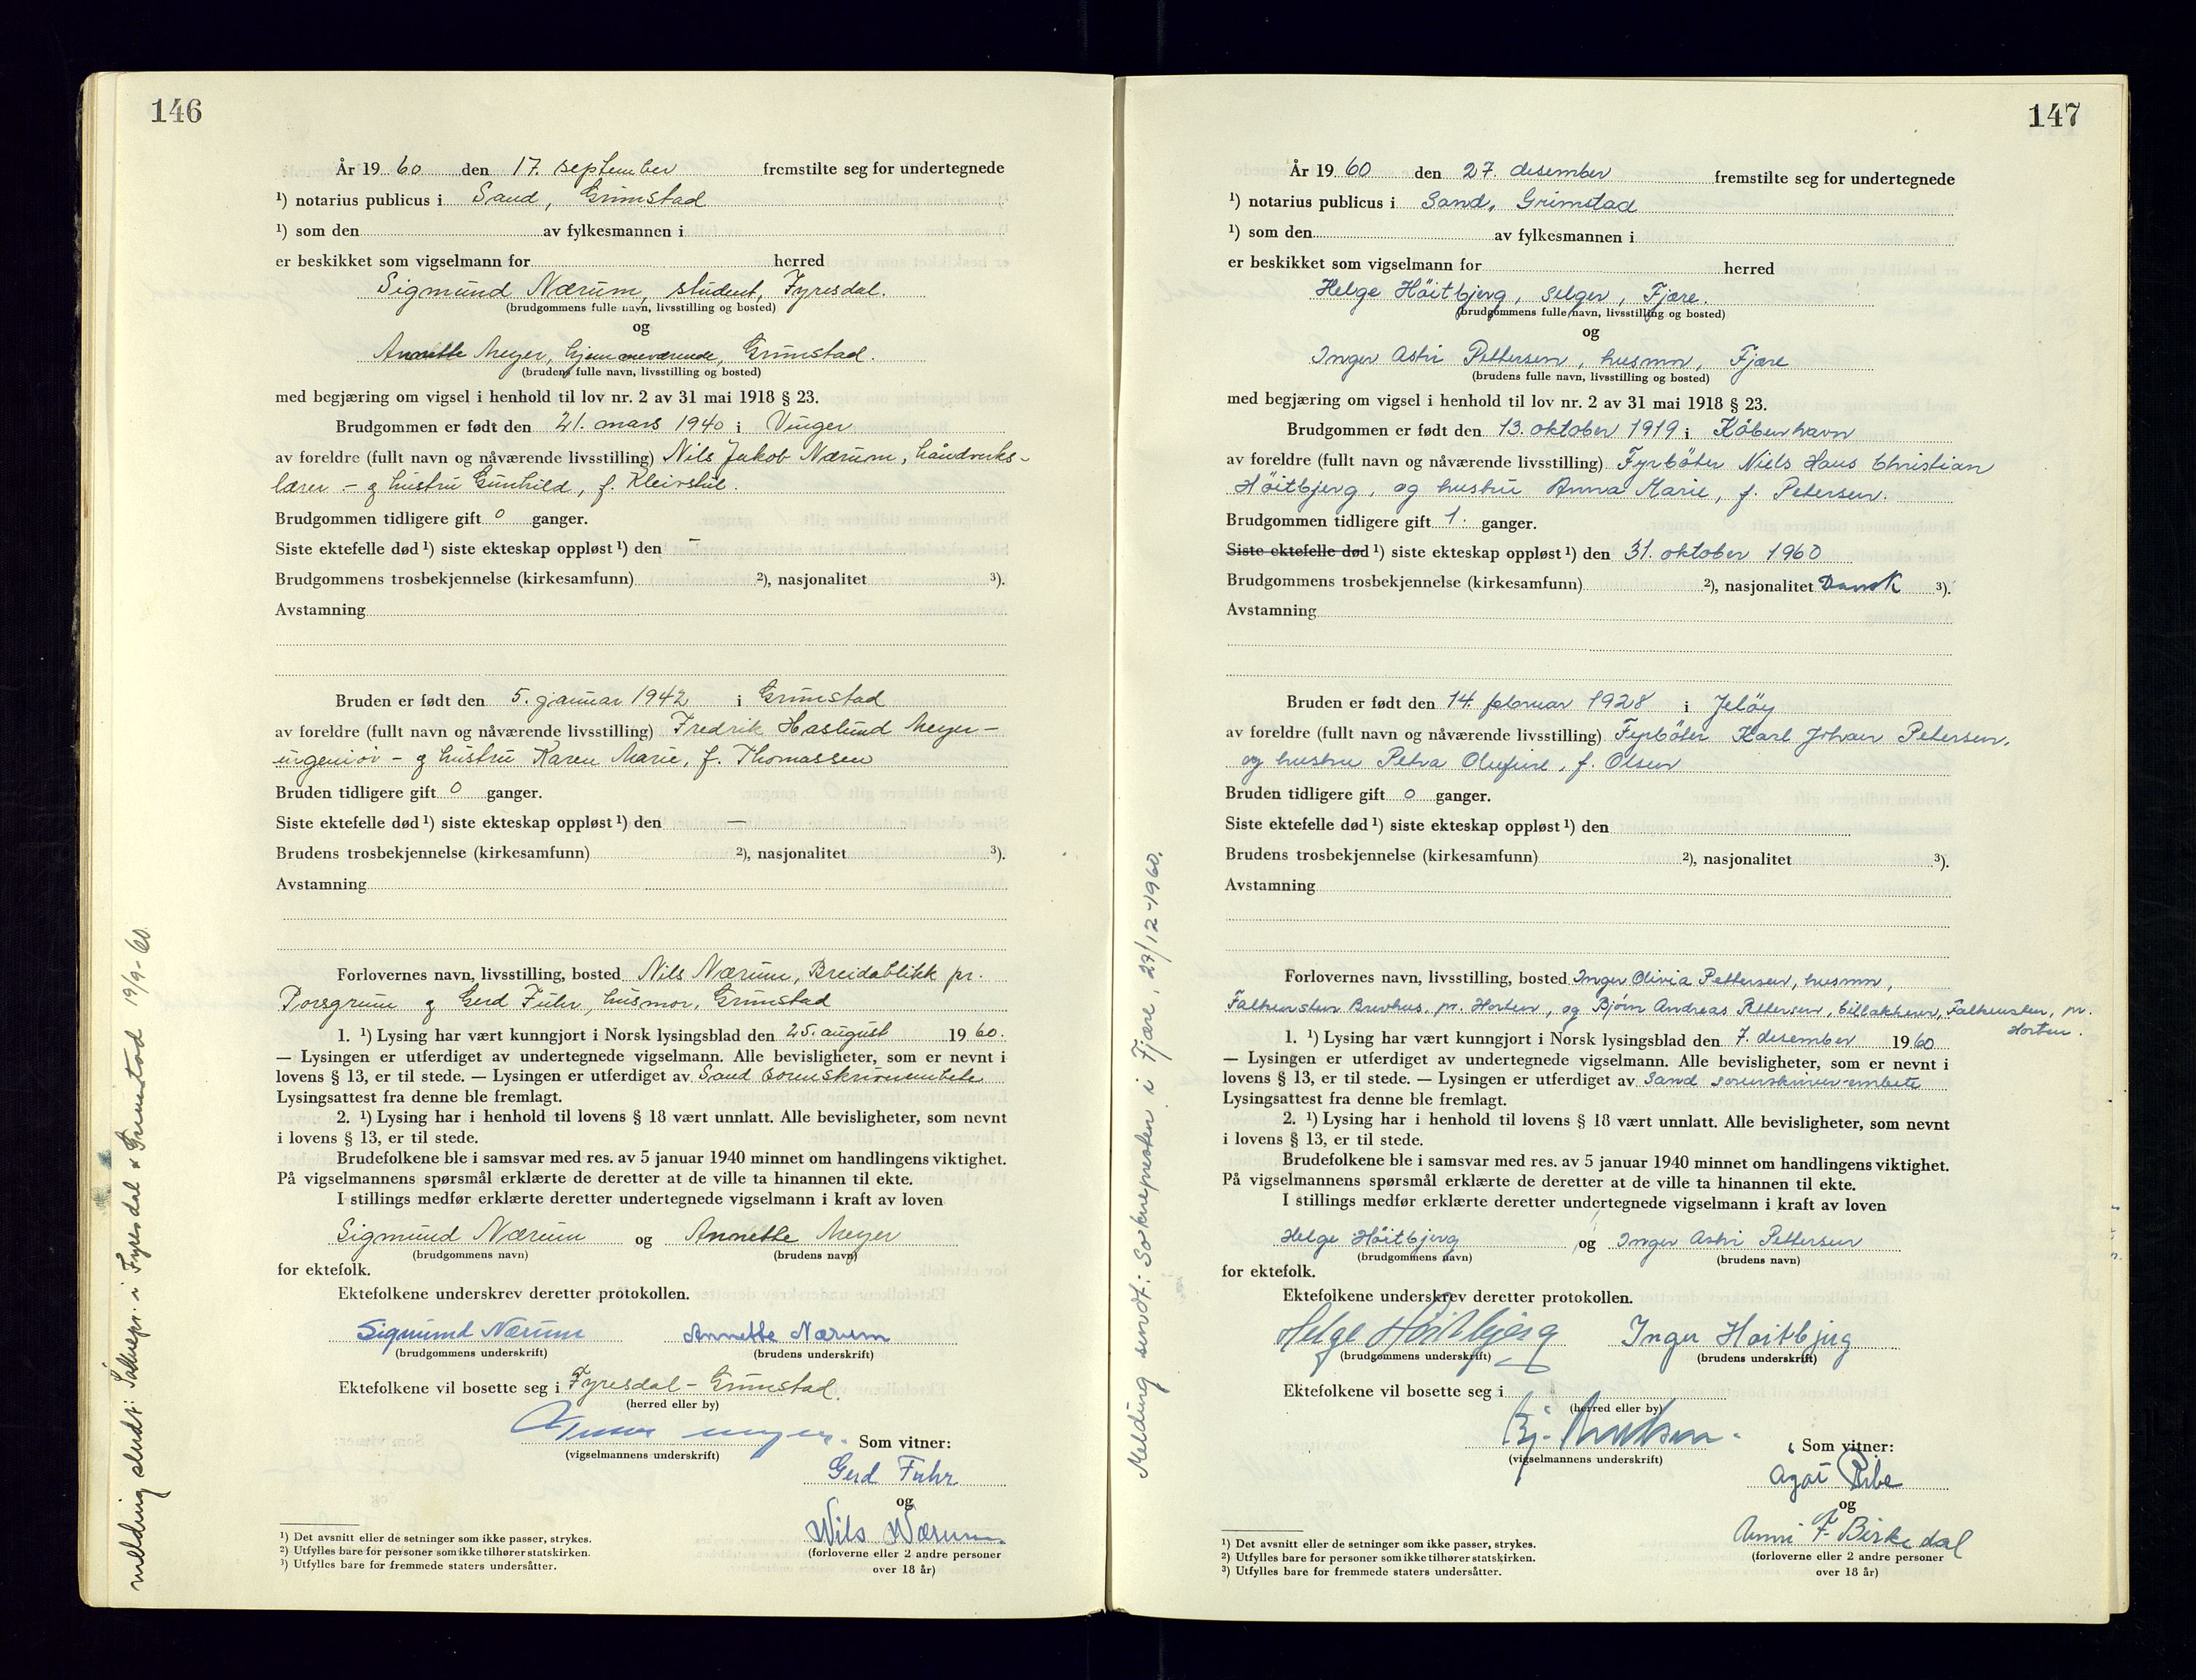 146
År 19 60 den 17. september fremstilte seg for undertegnede
¹) notarius publicus i Sand, Grimstad
¹) som den av fylkesmannen i
er beskikket som vigselmann for herred
Sigmund Nærum, student, Fyresdal.
(brudgommens fulle navn, livsstilling og bosted)
og
Annette Meyer, hjemmeværende, Grimstad.
(brudens fulle navn, livsstilling og bosted)
med begjæring om vigsel i henhold til lov nr. 2 av 31 mai 1918 § 23.
Brudgommen er født den 21. mars 1940 i Vinger
av foreldre (fullt navn og nåværende livsstilling) Nils Jakob Nærum, håndverks-
lærer - og hustru Gunhild, f. Kleivstul.
Brudgommen tidligere gift 0 ganger.
Siste ektefelle død ¹) siste ekteskap oppløst ¹) den -
Brudgommens trosbekjennelse (kirkesamfunn) ²), nasjonalitet ³).
Avstamning
Bruden er født den 5. januar 1942 i Grimstad
av foreldre (fullt navn og nåværende livsstilling) Fredrik Haslund Meyer -
ingeniør - og hustru Karen Marie, f. Thomassen
Bruden tidligere gift 0 ganger.
Siste ektefelle død ¹) siste ekteskap oppløst ¹) den —
Brudens trosbekjennelse (kirkesamfunn) ²), nasjonalitet ³).
Avstamning
Forlovernes navn, livsstilling, bosted Nils Nærum, Breidablikk pr.
Porsgrunn og Gerd Fuhr, husmor, Grimstad
1. ¹) Lysing har vært kunngjort i Norsk lysingsblad den 25. august 19 60.
— Lysingen er utferdiget av undertegnede vigselmann. Alle bevisligheter, som er nevnt i
lovens § 13, er til stede. — Lysingen er utferdiget av Sand sorenskriverembete
Lysingsattest fra denne ble fremlagt.
2. ¹) Lysing har i henhold til lovens § 18 vært unnlatt. Alle bevisligheter, som nevnt
i lovens § 13, er til stede.
Brudefolkene ble i samsvar med res. av 5 januar 1940 minnet om handlingens viktighet.
På vigselmannens spørsmål erklærte de deretter at de ville ta hinannen til ekte.
I stillings medfør erklærte deretter undertegnede vigselmann i kraft av loven
Sigmund Nærum og Annette Meyer
(brudgommens navn) (brudens navn)
for ektefolk.
Ektefolkene underskrev deretter protokollen.
Sigmund Nærum Annette Nærum
(brudgommens underskrift) (brudens underskrift)
Ektefolkene vil bosette seg i Fyresdal - Grimstad.
(herred eller by)
Som vitner:
(vigselmannens underskrift)
Gerd Fuhr
og
Nils Nærum
(forloverne eller 2 andre personer
over 18 år)
¹) Det avsnitt eller de setninger som ikke passer, strykes.
²) Utfylles bare for personer som ikke tilhører statskirken.
³) Utfylles bare for fremmede staters undersåtter.
melding sendt: Soknepr. i Fyresdal & Grimstad 19/9-60.
147
År 19 60 den 27. desember fremstilte seg for undertegnede
¹) notarius publicus i Sand, Grimstad
¹) som den av fylkesmannen i
er beskikket som vigselmann for herred
Helge Höitbjerg, selger, Fjære.
(brudgommens fulle navn, livsstilling og bosted)
og
Inger Astri Pettersen, husmor, Fjære
(brudens fulle navn, livsstilling og bosted)
med begjæring om vigsel i henhold til lov nr. 2 av 31 mai 1918 § 23.
Brudgommen er født den 13. oktober 1919 i Köbenhavn
av foreldre (fullt navn og nåværende livsstilling) Fyrböter Niels Hans Christian
Höitbjerg, og hustru Anna Marie, f. Petersen.
Brudgommen tidligere gift 1. ganger.
Siste ektefelle død ¹) siste ekteskap oppløst ¹) den 31. oktober 1960
Brudgommens trosbekjennelse (kirkesamfunn) ²), nasjonalitet Dansk ³).
Avstamning
Bruden er født den 14. februar 1928 i Jelöy
av foreldre (fullt navn og nåværende livsstilling) Fyrböter Karl Johan Petersen,
og hustru Petra Olufine, f. Olsen
Bruden tidligere gift 0 ganger.
Siste ektefelle død ¹) siste ekteskap oppløst ¹) den
Brudens trosbekjennelse (kirkesamfunn) ²), nasjonalitet ³).
Avstamning
Forlovernes navn, livsstilling, bosted Inger Olivia Pettersen, husmor,
Falkensten Brevhus, pr. Horten, og Bjørn Andreas Pettersen, billakkerer, Falkensten, pr.
Horten.
1. ¹) Lysing har vært kunngjort i Norsk lysingsblad den 7. desember 19 60
— Lysingen er utferdiget av undertegnede vigselmann. Alle bevisligheter, som er nevnt i
lovens § 13, er til stede. — Lysingen er utferdiget av Sand sorenskriver-embete
Lysingsattest fra denne ble fremlagt.
2. ¹) Lysing har i henhold til lovens § 18 vært unnlatt. Alle bevisligheter, som nevnt
i lovens § 13, er til stede.
Brudefolkene ble i samsvar med res. av 5 januar 1940 minnet om handlingens viktighet.
På vigselmannens spørsmål erklærte de deretter at de ville ta hinannen til ekte.
I stillings medfør erklærte deretter undertegnede vigselmann i kraft av loven
Helge Höitbjerg og Inger Astri Pettersen
(brudgommens navn) (brudens navn)
for ektefolk.
Ektefolkene underskrev deretter protokollen.
Helge Höitbjerg Inger Høitbjerg
(brudgommens underskrift) (brudens underskrift)
Ektefolkene vil bosette seg i
(herred eller by)
Som vitner:
(vigselmannens underskrift)
Agot Ribe
og
Anni F. Birkedal
(forloverne eller 2 andre personer
over 18 år)
¹) Det avsnitt eller de setninger som ikke passer, strykes.
²) Utfylles bare for personer som ikke tilhører statskirken.
³) Utfylles bare for fremmede staters undersåtter.
Melding sendt: Soknepresten i Fjære, 27/12-1960.